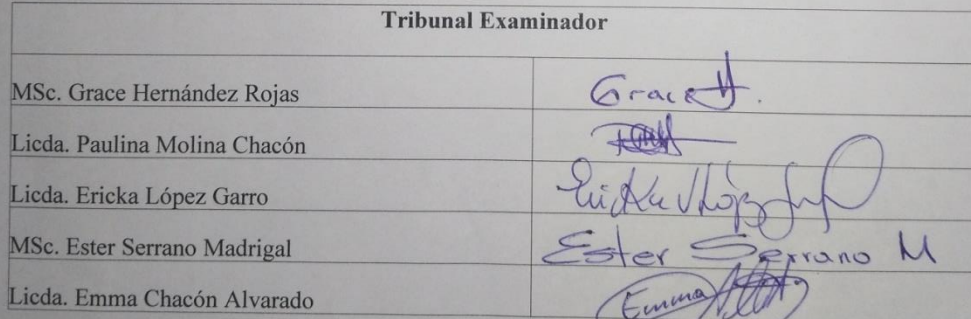 Tribunal Examinador
MSc. Grace Hernández Rojas Grace H.
Licda. Paulina Molina Chacón
Licda. Ericka López Garro Ericka V López
MSc. Ester Serrano Madrigal Ester Serrano M
Licda. Emma Chacón Alvarado Emma